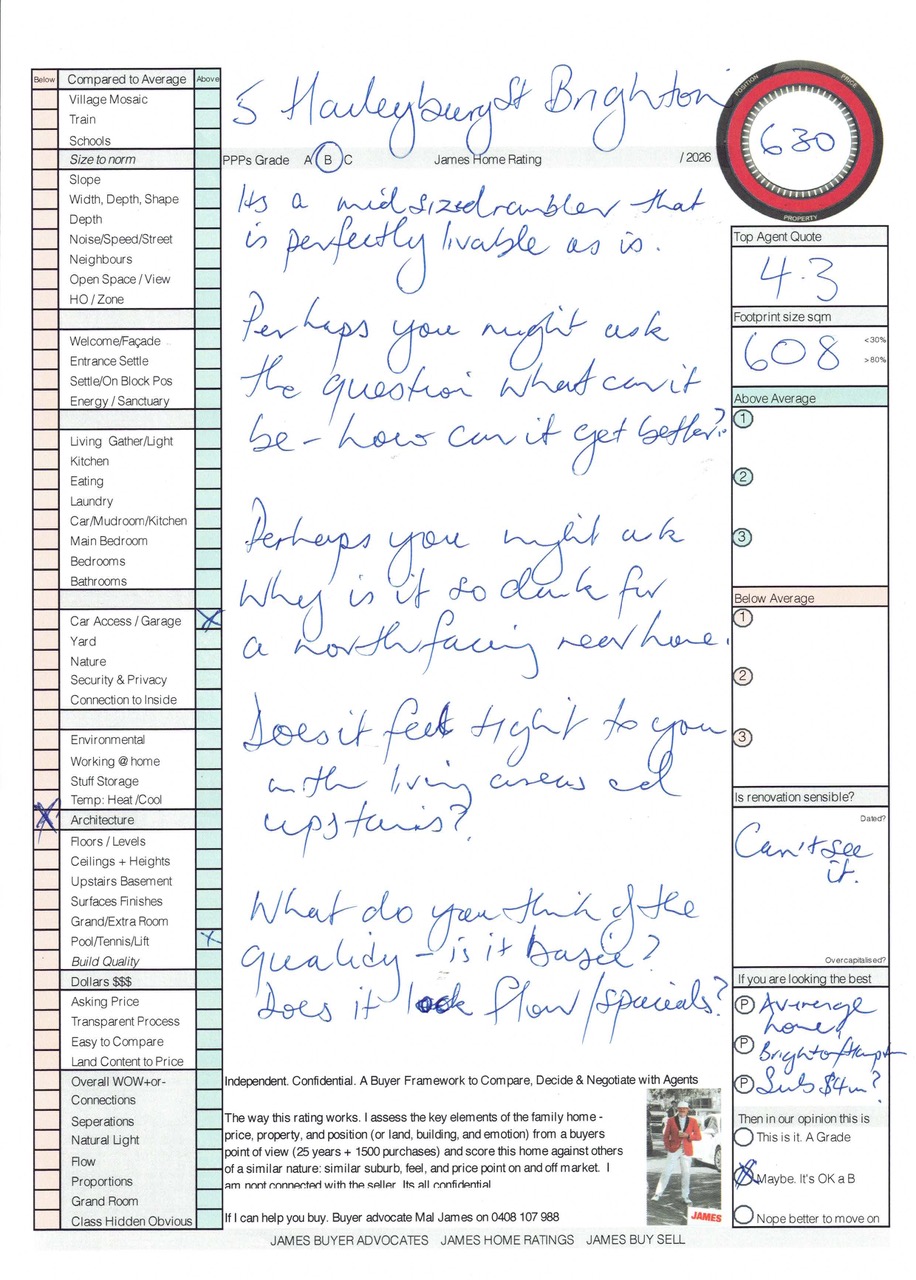 5 Haileybury St Brighton
Below Compared to Average Above
Village Mosaic
Train
Schools
Size to norm
Slope
Width, Depth, Shape
Depth
Noise/Speed/Street
Neighbours
Open Space / View
HO / Zone
Welcome/Façade
Entrance Settle
Settle/On Block Pos
Energy / Sanctuary
Living Gather/Light
Kitchen
Eating
Laundry
Car/Mudroom/Kitchen
Main Bedroom
Bedrooms
Bathrooms
Car Access / Garage X
Yard
Nature
Security & Privacy
Connection to Inside
Environmental
Working @ home
Stuff Storage
Temp: Heat /Cool
X Architecture
Floors / Levels
Ceilings + Heights
Upstairs Basement
Surfaces Finishes
Grand/Extra Room
Pool/Tennis/Lift X
Build Quality
Dollars $$$
Asking Price
Transparent Process
Easy to Compare
Land Content to Price
Overall WOW+or-
Connections
Seperations
Natural Light
Flow
Proportions
Grand Room
Class Hidden Obvious
PPPs Grade A B C James Home Rating / 2026
Its a mid sized rambler that
is perfectly livable as is.
Perhaps you might ask
the question what can it
be - how can it get better?
Perhaps you might ask
why is it so dark for
a north facing rear home.
Does it feel tight to you
with living areas ad
upstairs?
What do you think of the
quality - is it basic?
Does it flow/specials?
Independent. Confidential. A Buyer Framework to Compare, Decide & Negotiate with Agents
The way this rating works. I assess the key elements of the family home -
price, property, and position (or land, building, and emotion) from a buyers
point of view (25 years + 1500 purchases) and score this home against others
of a similar nature: similar suburb, feel, and price point on and off market. I
am nopt connected with the seller. Its all confidential
If I can help you buy. Buyer advocate Mal James on 0408 107 988
JAMES
POSITION PRICE
630
PROPERTY
Top Agent Quote
4.3
Footprint size sqm
608 <30%
>80%
Above Average
1
2
3
Below Average
1
2
3
Is renovation sensible?
Dated?
Can't see
it.
Overcapitalised?
If you are looking the best
P Average
home
P Brighton/Hampton
P Sub $4m?
Then in our opinion this is
This is it. A Grade
X Maybe. It's OK a B
Nope better to move on
JAMES BUYER ADVOCATES JAMES HOME RATINGS JAMES BUY SELL